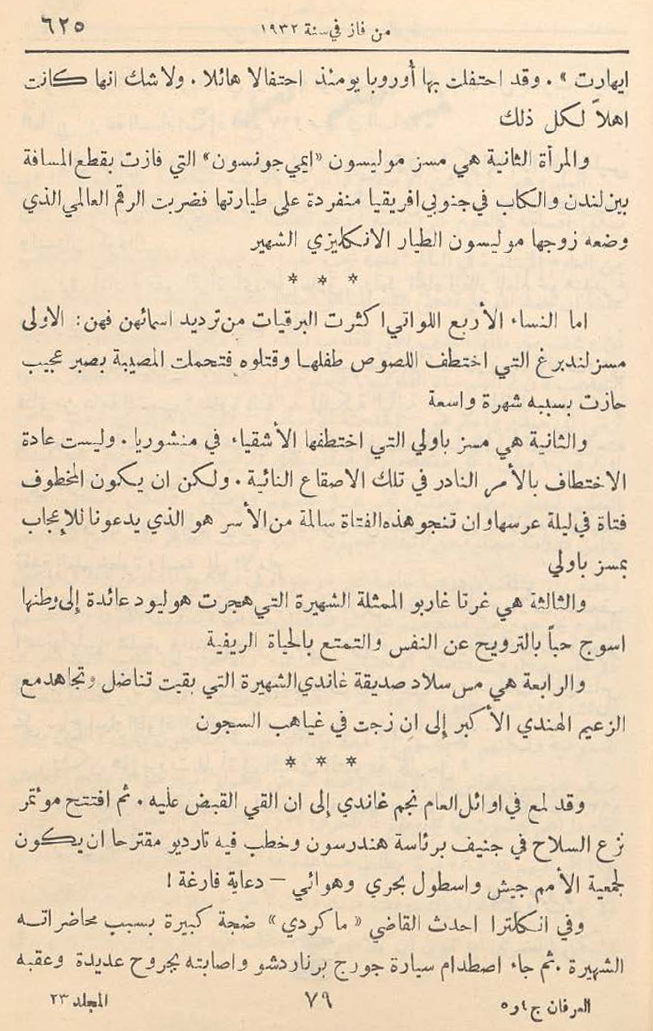 من فاز في سنة ١٩٣٢ ٦٢٥
ايهارت » . وقد احتفلت بها أوروبا يومئذ احتفالا هائلا . ولا شك انها كانت
اهلاً لكل ذلك
والمرأة الثانية هي مسز موليسون «ايمي جونسون» التي فازت بقطع المسافة
بين لندن والكاب في جنوبي افريقيا منفردة على طيارتها فضربت الرقم العالمي الذي
وضعه زوجها موليسون الطيار الانكليزي الشهير
* * *
اما النساء الأربع اللواتي اكثرت البرقيات من ترديد اسمائهن فهن : الاولى
مسز لندبرغ التي اختطف اللصوص طفلها وقتلوه فتحملت المصيبة بصبر عجيب
حازت بسببه شهرة واسعة
والثانية هي مسز باولي التي اختطفها الأشقياء في منشوريا . وليست عادة
الاختطاف بالأمر النادر في تلك الاصقاع النائية . ولكن ان يكون المخطوف
فتاة في ليلة عرسها وان تنجو هذه الفتاة سالمة من الأسر هو الذي يدعونا للإعجاب
بمسز باولي
والثالثة هي غرتا غاربو الممثلة الشهيرة التي هجرت هوليود عائدة إلى وطنها
اسوج حباً بالترويح عن النفس والتمتع بالحياة الريفية
والرابعة هي مس سلاد صديقة غاندي الشهيرة التي بقيت تناضل وتجاهد مع
الزعيم الهندي الأكبر إلى ان زجت في غياهب السجون
* * *
وقد لمع في اوائل العام نجم غاندي إلى ان القي القبض عليه . ثم افتتح مؤتمر
نزع السلاح في جنيف برئاسة هندرسون وخطب فيه تارديو مقترحا ان يكون
لجمعية الأمم جيش واسطول بحري وهوائي – دعاية فارغة !
وفي انكلترا احدث القاضي « ماكردي » ضجة كبيرة بسبب محاضراته
الشهيرة . ثم جاء اصطدام سيارة جورج برناردشو واصابته بجروح عديدة وعقبه
العرفان ج ٤ و ٥ ٧٩ المجلد ٢٣